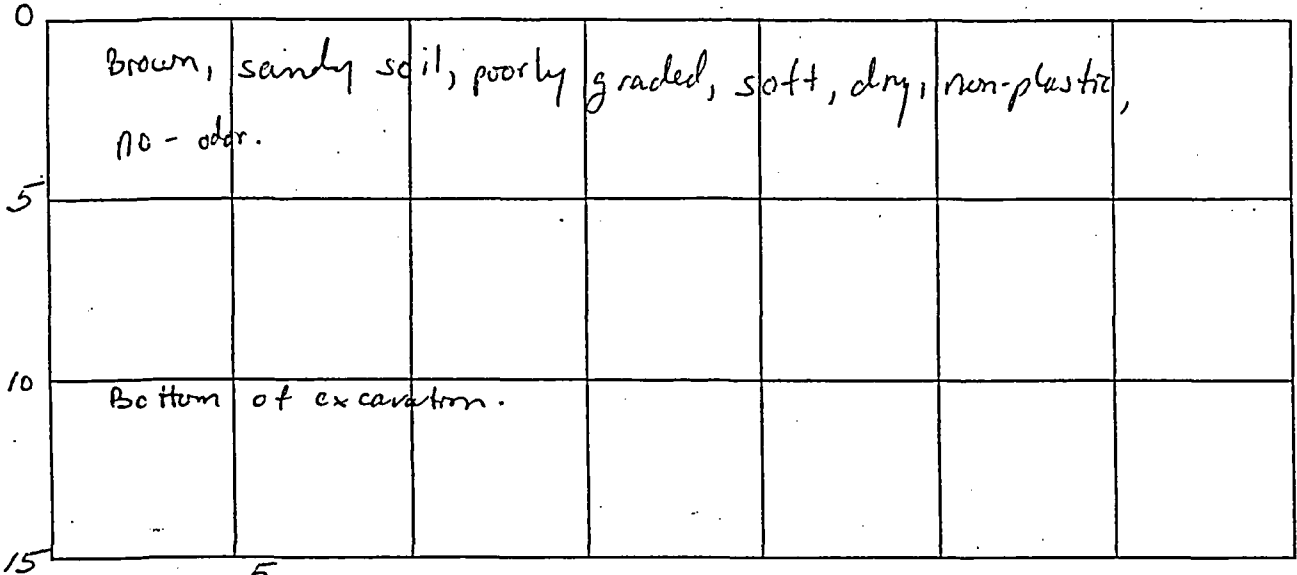 0
Brown, sandy soil, poorly graded, soft, dry, non-plastic,
no-odor.
5
10
Bottom of excavation.
15
5